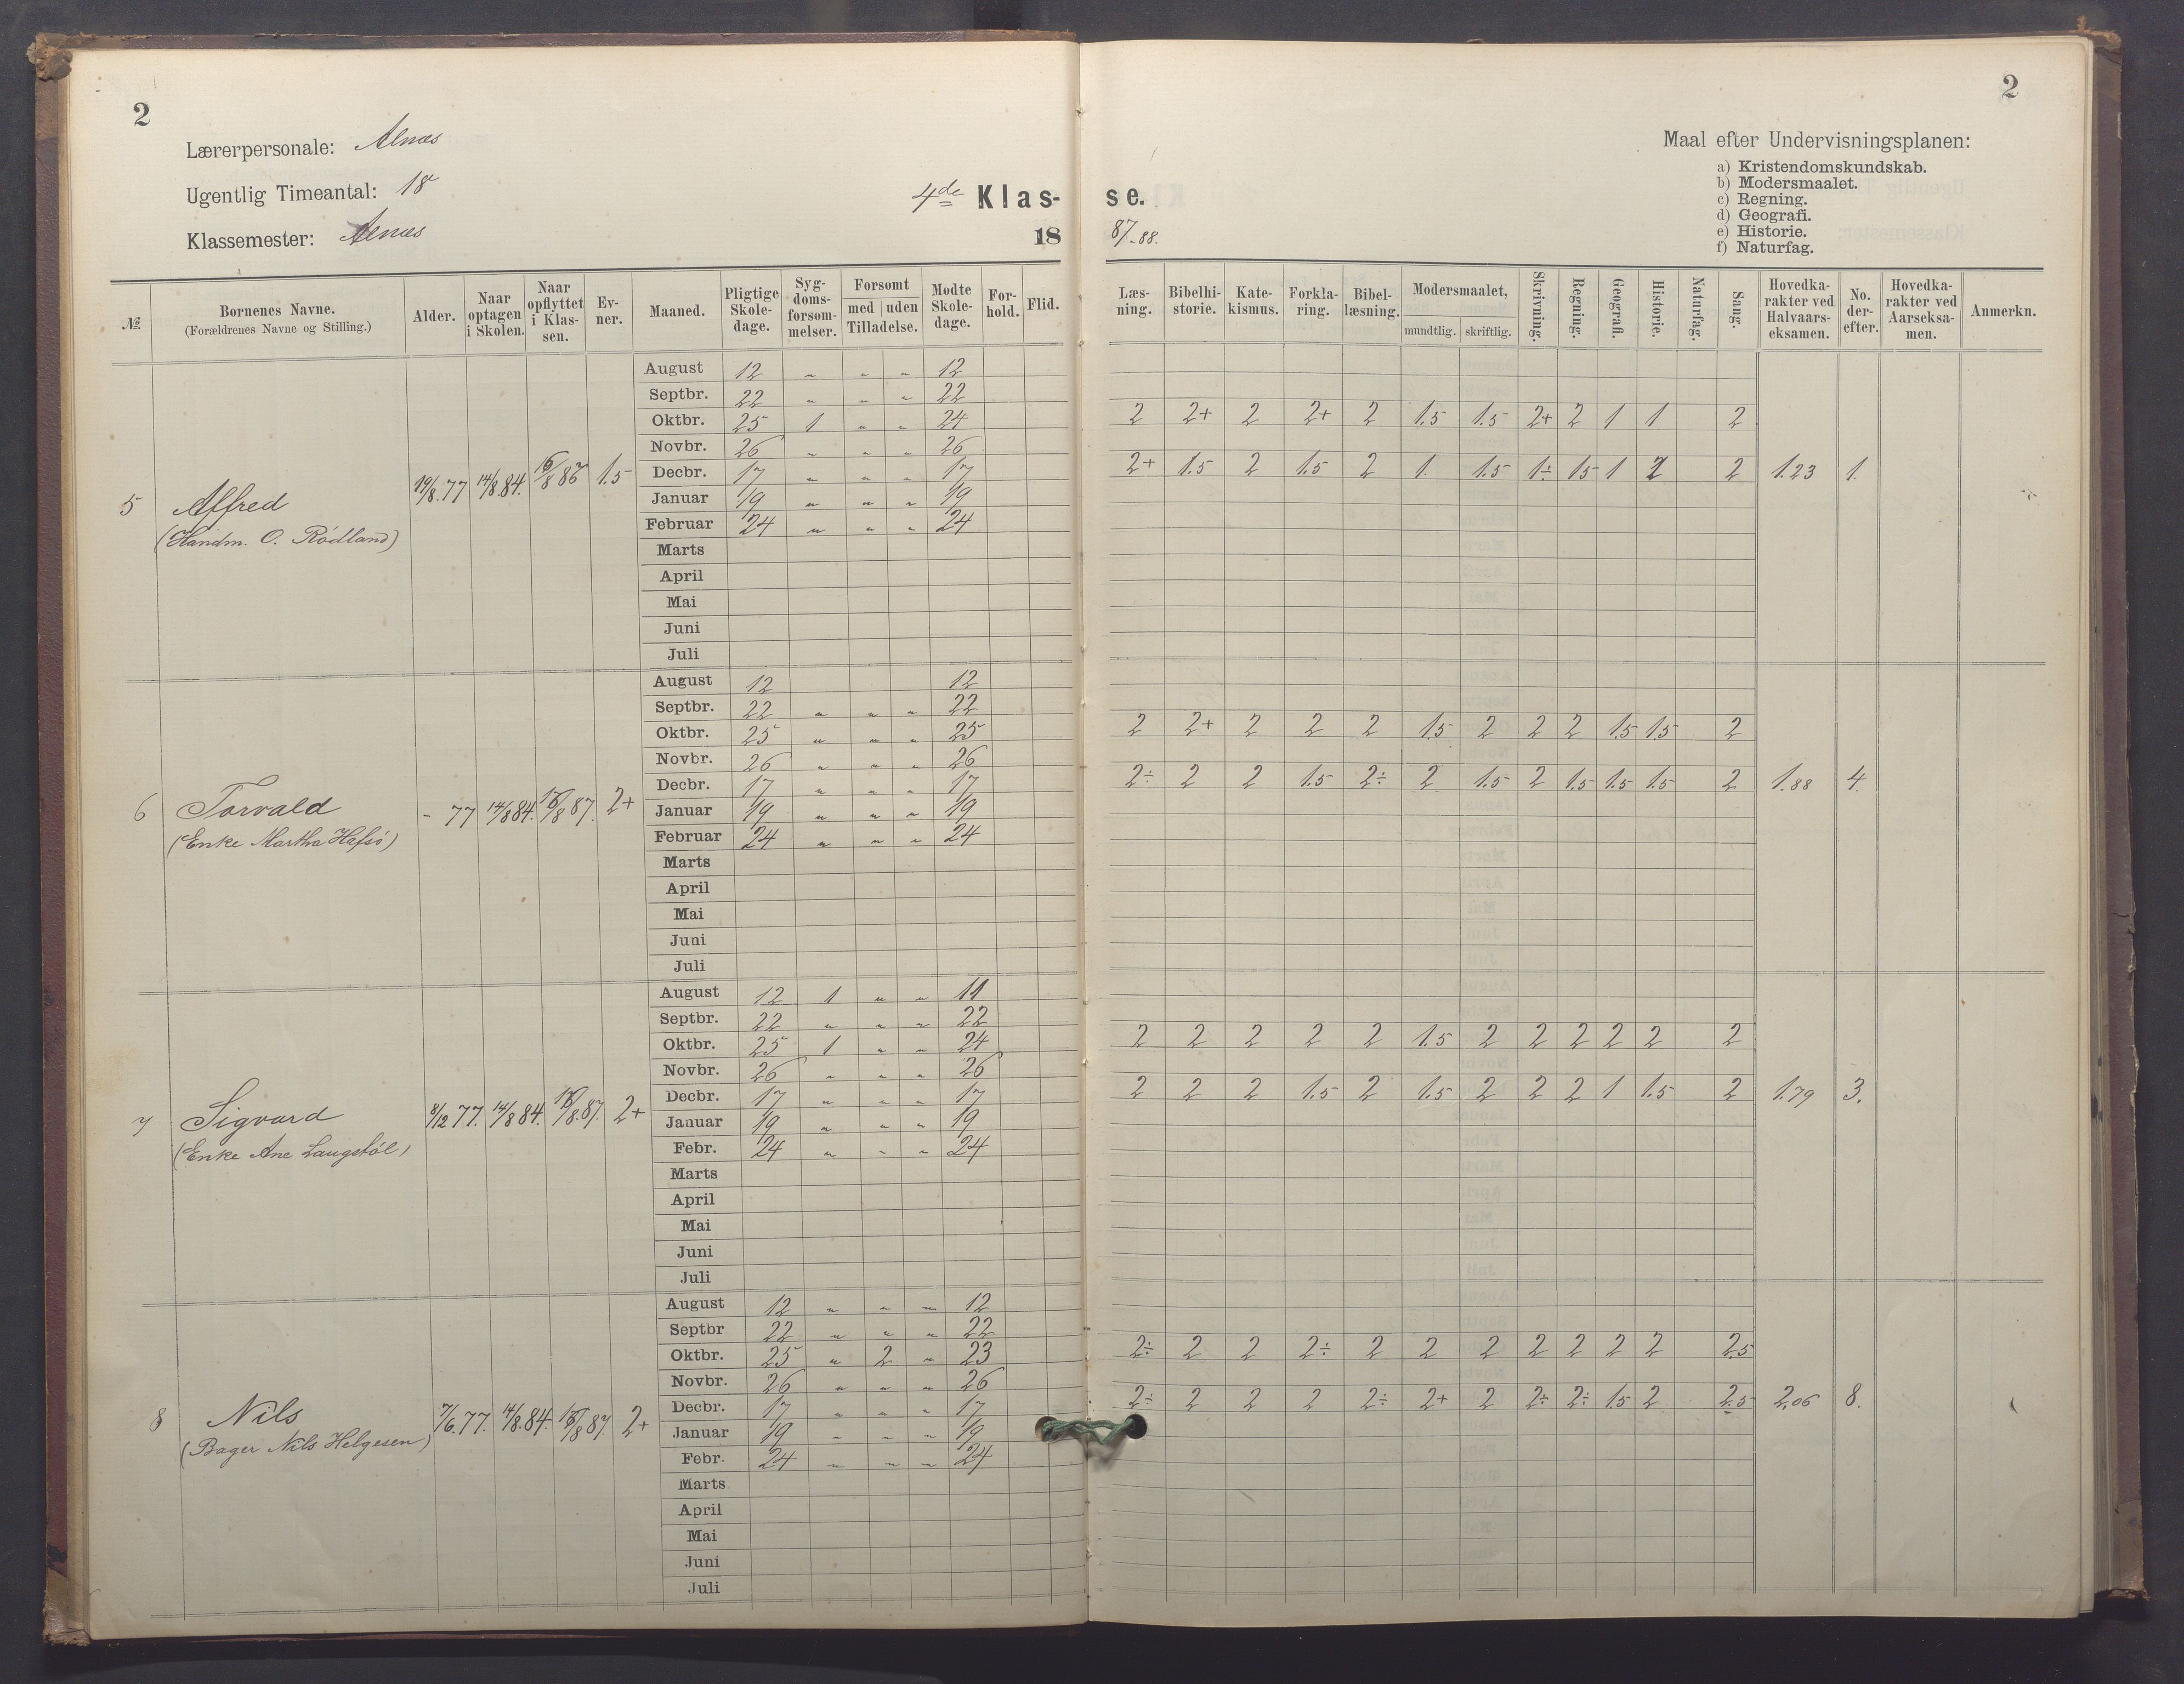 2
2
Lærerpersonale: Alnæs
Ugentlig Timeantal: 18
Klassemester: Alnæs
4de Klas- se.
18 87-88.
Maal efter Undervisningsplanen:
a) Kristendomskundskab.
b) Modersmaalet.
c) Regning.
d) Geografi.
e) Historie.
f) Naturfag.
№ | Børnenes Navne. (Forældrenes Navne og Stilling.) | Alder. | Naar optagen i Skolen. | Naar opflyttet i Klassen. | Evner. | Maaned. | Pligtige Skoledage. | Sygdomsforsømmelser. | Forsømt med uden Tilladelse. | Mødte Skoledage. | Forhold. | Flid. | Læsning. | Bibelhistorie. | Katekismus. | Forklaring. | Bibellæsning. | Modersmaalet, mundtlig. skriftlig. | Skrivning. | Regning. | Geografi. | Historie. | Naturfag. | Sang. | Hovedkarakter ved Halvaarseksamen. | No. derefter. | Hovedkarakter ved Aarseksamen. | Anmerkn.
August 12 " " " 12
Septbr. 22 " " " 22
Oktbr. 25 1 " " 24 2 2+ 2 2+ 2 1.5 1.5 2+ 2 1 1 2
Novbr. 26 " " " 26
Decbr. 17 " " " 17 2+ 1.5 2 1.5 2 1. 1.5 1÷ 1.5 1 2 1.23 1.
5 Alfred 19/8.77 14/8.84. /8 86 1.5
(Handm. O. Rødland)
Januar 19 " " " 19
Februar 24 " " " 24
Marts
April
Mai
Juni
Juli
August 12 12
Septbr. 22 " " " 22
Oktbr. 25 " " " 25 2 2+ 2 2 2 1.5 2 2 2 1.5 1.5 2
Novbr. 26 " " " 26
Decbr. 17 " " " 17 2÷ 2 2 1.5 2÷ 2 1.5 2 1.5 1.5 1.5 2 1.88 4.
6 Torvald - 77 14/8 84. /8 87. 2+
(Enke Martha Hafsø)
Januar 19 " " " 19
Februar 24 " " " 24
Marts
April
Mai
Juni
Juli
August 12 1 " " 11
Septbr. 22 " " " 22
Oktbr. 25 1 " " 24 2 2 2 2 2 1.5 2 2 2 2 2 2
Novbr. 26 " " " 26
Decbr. 17 " " " 17 2 2 2 1.5 2 1.5 2 2 2 1 1.5 2 1.79 3.
7 Sigvard 8/12 77. 14/8 84. /8.87. 2+
(Enke Ane Laugstøl)
Januar 19 " " " 19
Febr. 24 " " " 24
Marts
April
Mai
Juni
Juli
August 12 " " " 12
Septbr 22 " " " 22
Oktbr. 25 " 2 " 23 2÷ 2 2 2÷ 2 2 2 2 2 2 2 2.5
Novbr. 26 " " " 26
Decbr. 17 " " " 17 2÷ 2 2 2 2÷ 2+ 2 2÷ 2÷ 1.5 2 2.5 2,06 8.
8 Nils 7/6.77. 14/8.84. /8 87. 2+
(Bager Nils Helgesen)
Januar 19 " " " 19
Febr. 24 " " " 24
Marts
April
Mai
Juni
Juli